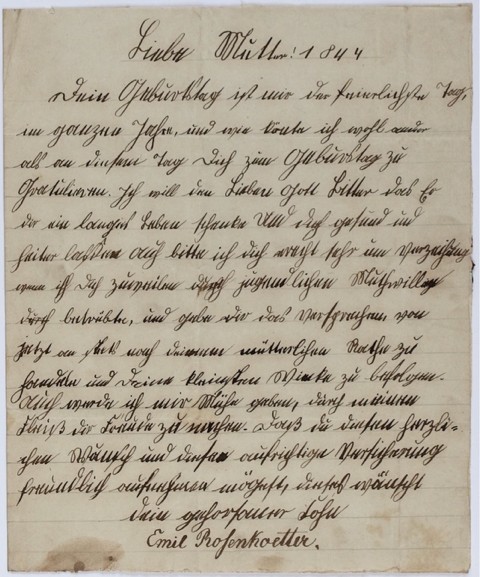 Liebe Mutter! 1844
Dein Geburtstag ist mir der feierlichste Tag,
im ganzen Jahre, und wie konte ich wohl
als an diesem Tag Dich zum Geburtstag zu
Gratulieren. Ich will den Lieben Gott bitten das Er
dir ein langes Leben schenke Und dich gesund und
heiter lassen auch bitte ich dich recht sehr um Verzeihung
wenn ich Dich zuweilen durch jugendlichen Muthwillen
betrübte, und gebe dir das Versprechen, von
jetzt an stets nach deinem mütterlichen Rathe zu
handeln und Deine kleinsten Winke zu befolgen.
Auch werde ich mir Mühe geben, durch meinen
Fleiß dir Freude zu machen. Daß du diesen herzli-
chen Wunsch und diese aufrichtige Versicherung
freundlich aufnehmen mögest, dieses wünscht
dein gehorsamer Sohn
Emil Rosenkoetter.